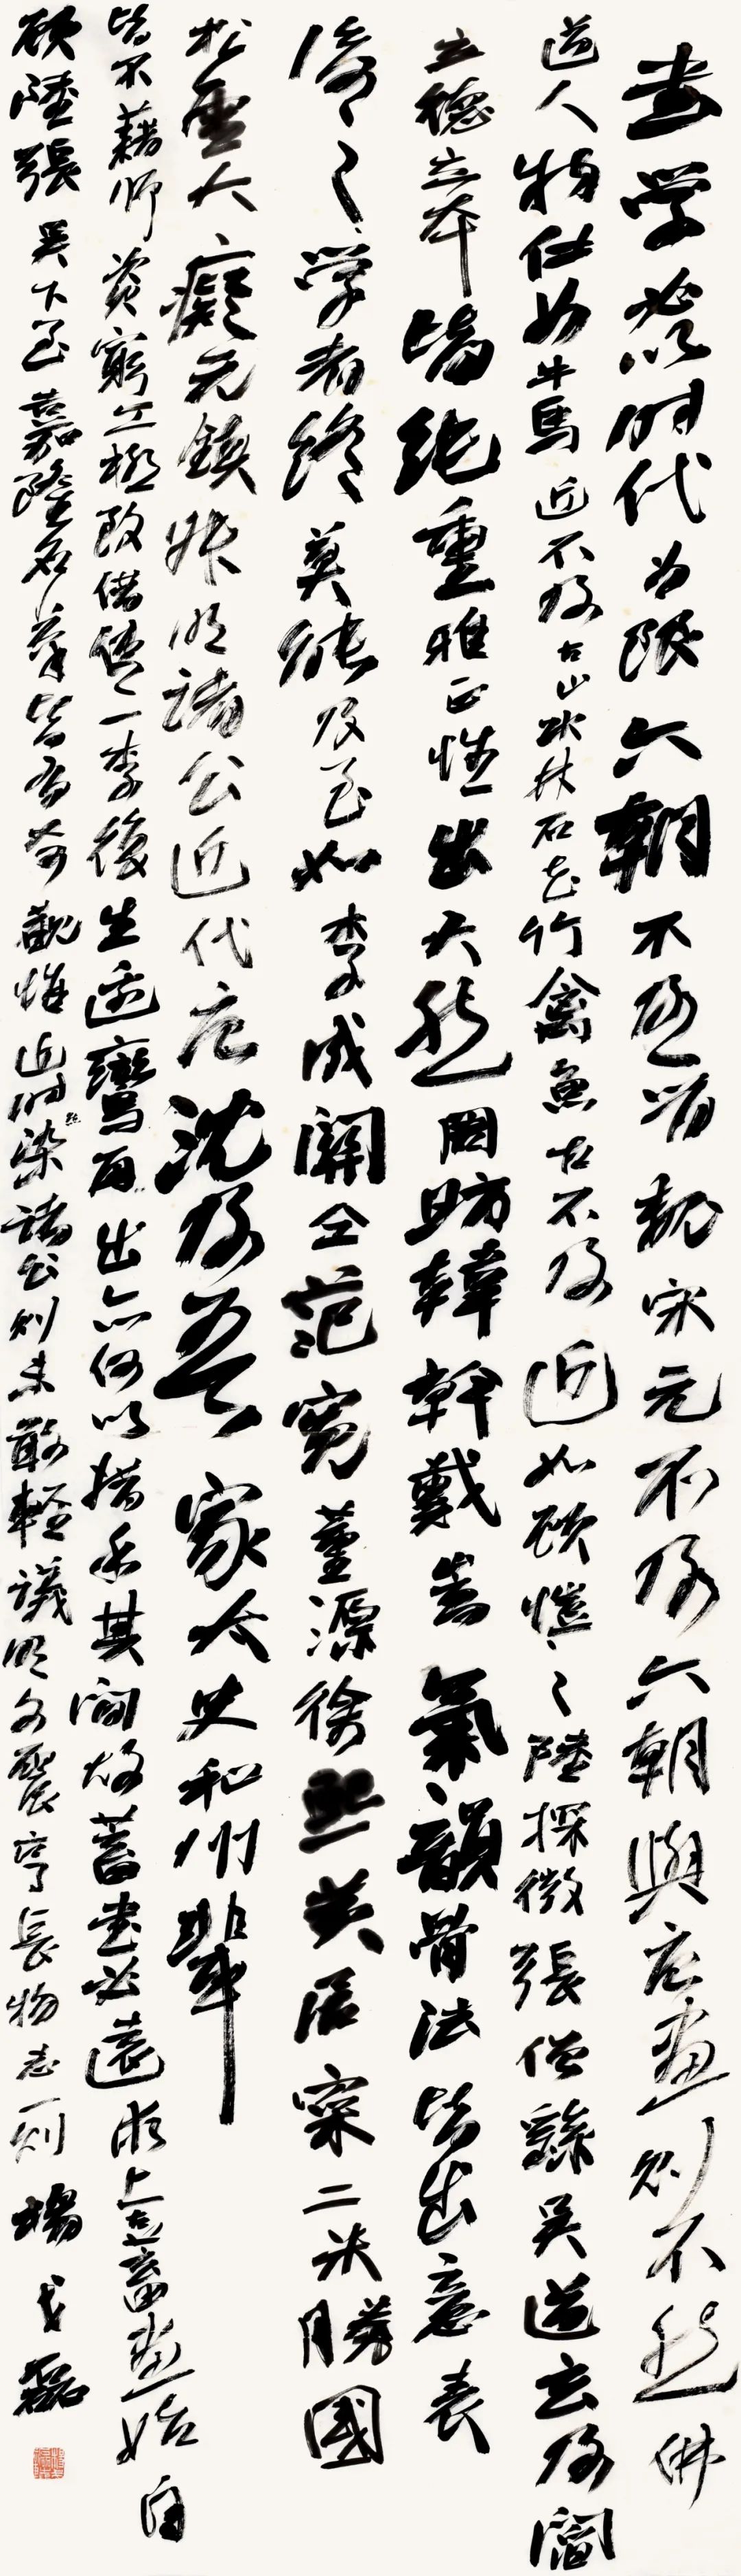 書学必以时代为限六朝不及晉魏宋元不及六朝與唐畫则不然佛
道人物仕女牛馬近不及古山水林石花竹禽魚古不及近如顧愷之陸探微張僧繇吳道玄及閻
立德立本皆純重雅正性出天然周昉韓幹戴嵩氣韻骨法皆出意表
後之学者終莫能及至如李成關仝范寬董源徐熙黄居寀二米勝國
松雪大癡元鎮叔明諸公近代唐沈及吾家太史和州輩
皆不藉師資窮工極致借使二李復生邊鸞再出亦何以措手其間故蓄書必遠求上古蓄畫始自
顧陸張吳下至嘉隆名筆皆有奇觀惟近时点染諸公则未敢輕議明文震亨長物志一则楊戈磊